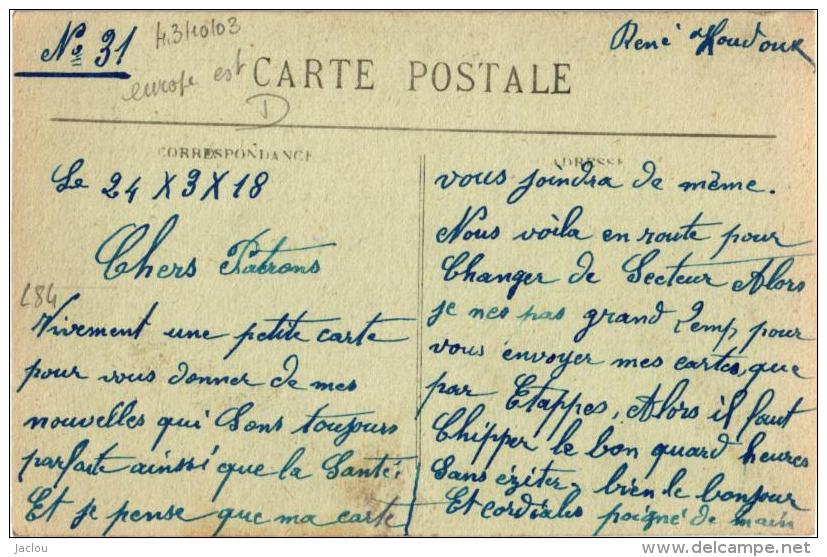 N° 31
4.3/10/03
René Houdoux
europe est
CARTE POSTALE
D
CORRESPONDANCE
ADRESSE
Le 24 X 3 X 18
Chers Patrons
L84
Vivement une petite carte
pour vous donner de mes
nouvelles qui Sons toujours
parfaite ainssi que la Santé.
Et je pense que ma carte
vous joindra de même.
Nous voila en route pour
Changer de Secteur Alors
je nes pas grand Temp pour
vous envoyer mes cartes, que
par Etappes, Alors il faut
Chipper le bon quard heures
Sans éziter, bien le bonjour
Et cordiales poigné de main
© delcampe.net
jaclou